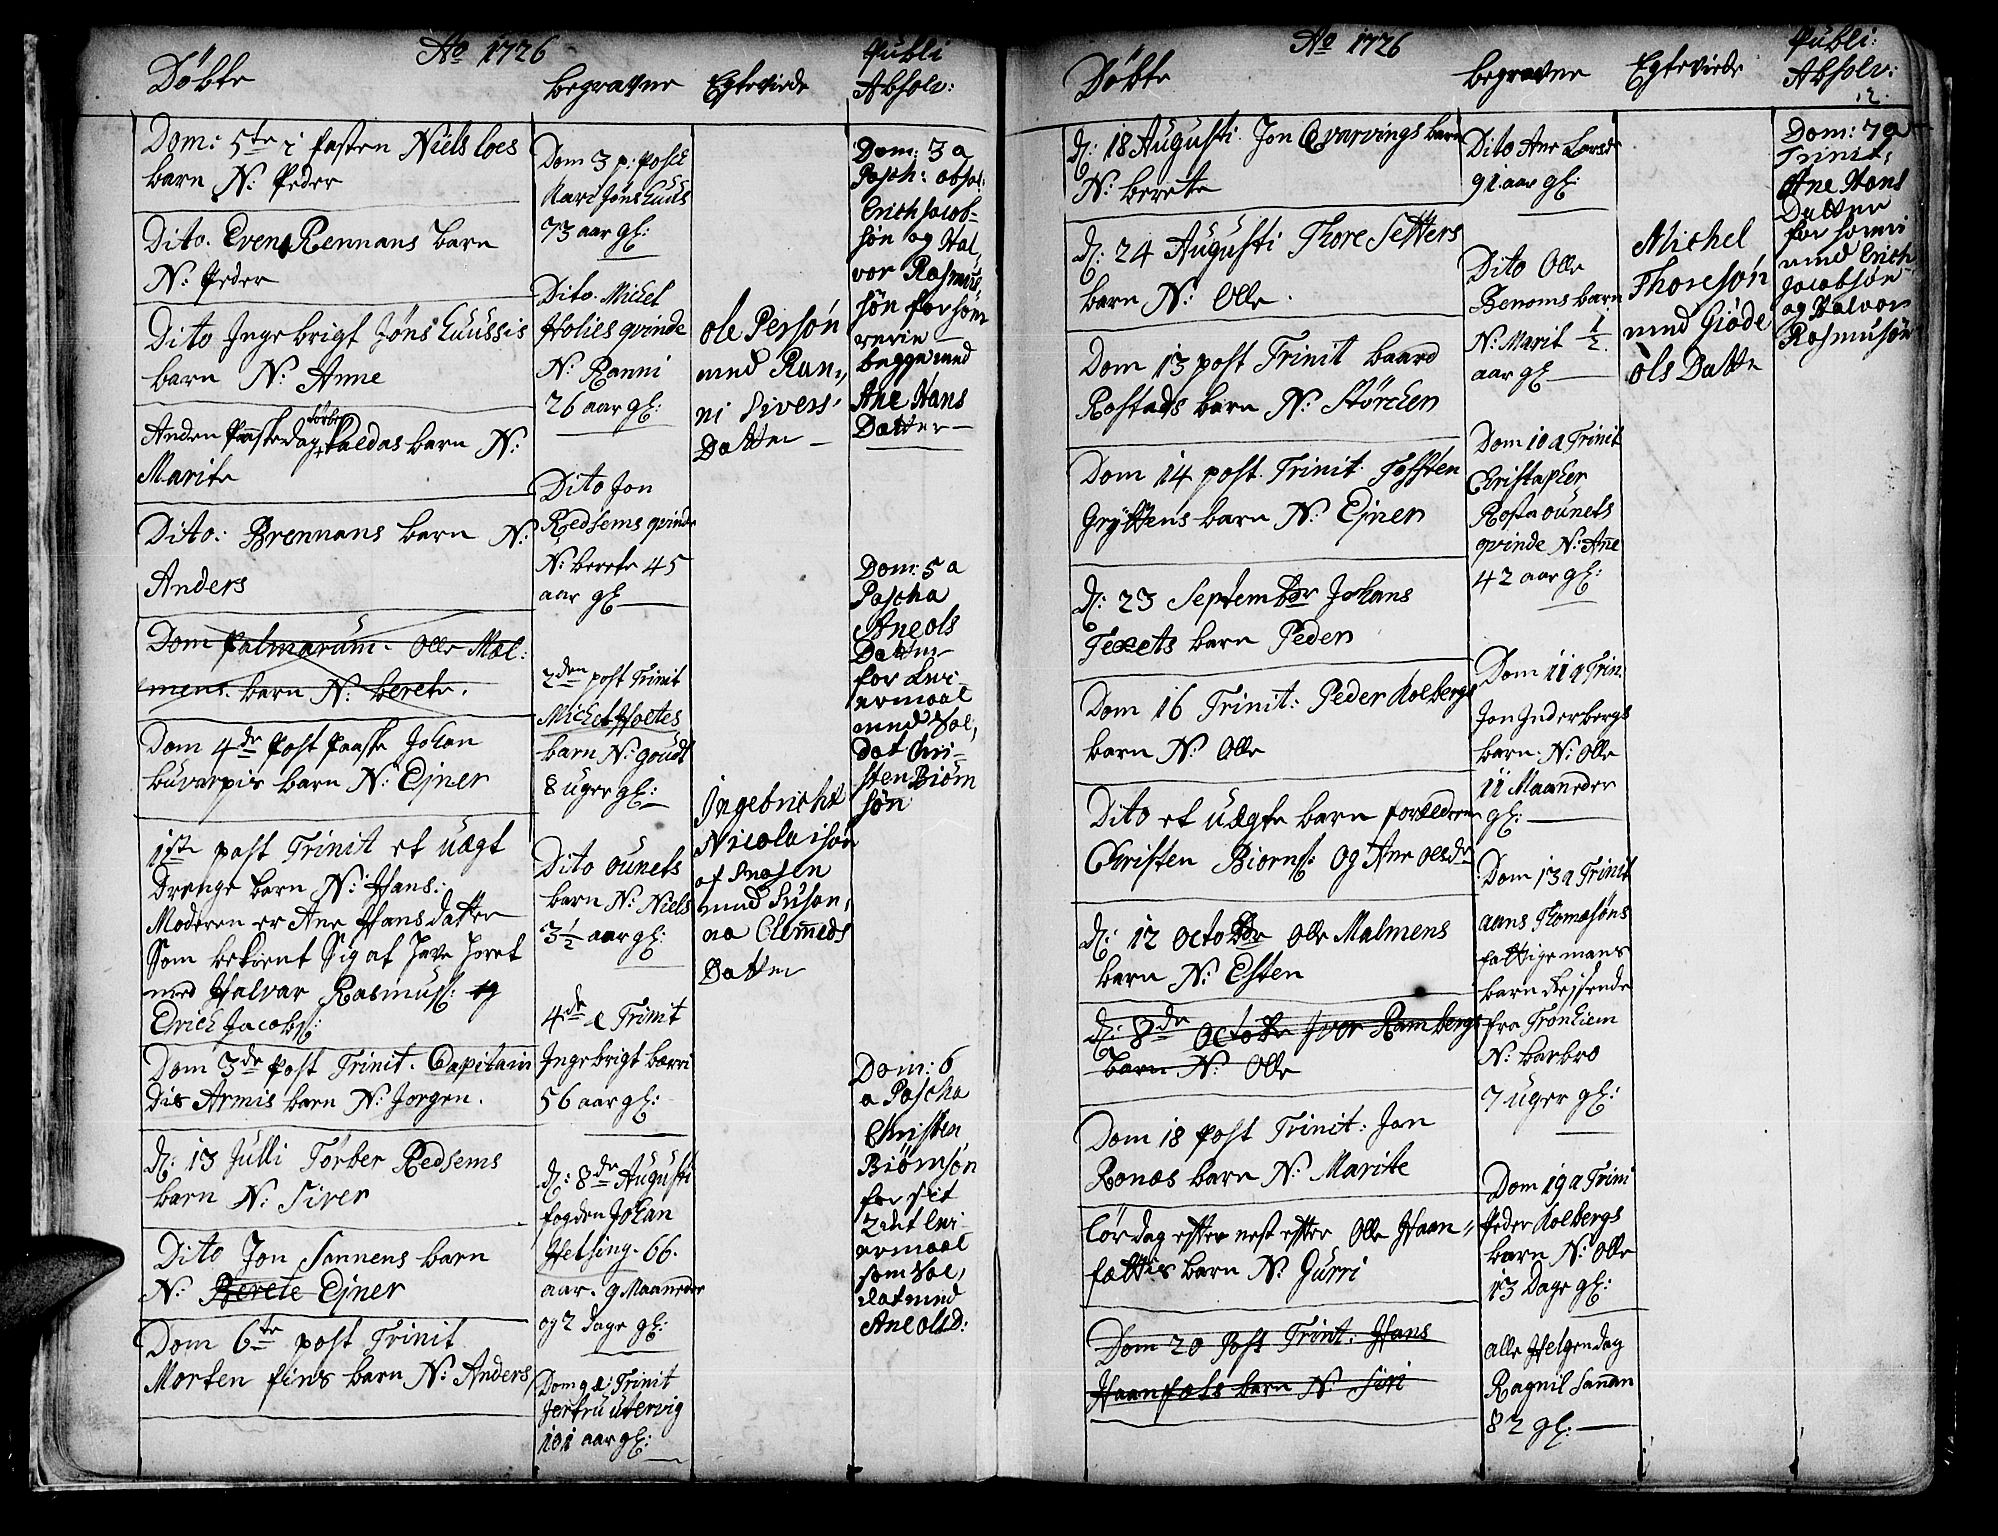 Aº 1726
Döbte
Dom: 5te i fasten Niels loes
barn N: Peder
Dito. Even Rennans barn
N: Peder
Dito Ingebrigt Jøns
barn N: Anne
Anden Paaskedag barn N:
Marite
Dito: Brennans barn N:
Anders
Dom Palmarum. Olle Mæl:
mens. barn N: berete.
Dom 4de Post Paaske Johan
barn N: Ejner
1ste post Trinit et uægt
Drenge barn N: Hans.
Moderen er Ane Hansdatter
Som bekient Sig at have horet
med Halvar Rasmus: og
Erich Jacobs:
Dom 3de post Trinit. Capitain
Dis Armis barn N: Jorgen.
d: 13 Julli Törber Redsems
barn N: Siver
Dito Jon Sannens barn
N: Berete Ejner
Dom 6te post Trinit
Morten fins barn N: Anders
begravne
Dom 3 p: Pasch
Kari Jøns
73 aar gl:
Dito. Michel
Holies qvinde
N: Ranni
26 aar gl:
Dito Jon
Redsems qvinde
N: berete 45
aar gl
2den post Trinit
Michel Holtes
barn N: goudt
8 uger gl:
Dito ounets
barn N: Niels
3½ aar gl:
4de Trinit
Ingebrigt bærri
56 aar gl:
d: 8de Augusti
fogden Johan
Helsing. 66.
aar. 9 Maaneder
og 2 dage gl:
Dom 9 Trinit
utervig
101 aar gl:
Egteviede
ole Persøn
med Ran,,
ni Sivers
Datter
Ingebricht
Nicolaisøn
af Snasen
med Susan,
na Clemeds
Datter
Publi
Absolv:
Dom: 3 a
Pasch: absol:
Erich Jacob-
søn og Hal,
vor Rasmus
søn for
begge med
Ane Hans
Datter
Dom: 5 a
Pascha
Ane ols
Datter
for Lei-
ermaal
med Sol,
dat Chri-
sten Biörn
søn
Dom: 6
a Pascha
Christen
Biörnsøn
for sit
2det Lei-
ermaal
som Sol,
dat med
Ane olsd:
Aº 1726
Döbte
d: 18 Augusti. Jon Qvarvings barn
N: berete
d: 24 Augusti Thore Setters
barn N: Olle.
Dom 13 post Trinit baard
Rostads barn N: Störcker
Dom 14 post Trinit. Tosten
Gryttens barn N: Ejner
d: 23 Septembr Johans
barn Peder
Dom 16 Trinit: Peder Kolbergs
barn N: Olle
Dito et uægte barn forældrene
Christen Biorns: og Ane olsdr
d: 12 Octobr Olle Malmens
barn N: Esten
d: 8de Octobr Iver Rambergs
barn N: Olle
Dom 18 post Trinit: Jon
Ronæs barn N: Marite
Lördag efter nest efter Olle Haan-
fættis barn N: Gurri
Dom 20 Post Trinit: Hans
barn N: Siri
begravne
Dito Ane Larsdr
91 aar gl:
Dito Olle
Benoms barn
N: Marit ½
aar gl
Dom 10 a Trinit
Christopher
Rostaounets
qvinde N: Ane
42 aar gl:
Dom 11 a Trin:
Jon Inderbergs
barn: N: Olle
11 Maaneder
gl:
Dom 13 a Trinit
Thomæsøns
fattige mans
barn Rejsende
fra Tronhiem
N: barbro
7 uger gl:
Dom 19 a Trini
Peder Kolbergs
barn N: Olle
13 Dage gl:
alle Helgendag
Ragnil Sanan
82 gl:
Egteviede
Michel
Thoresøn
med Giøde
ols Datte
Publi:
Absolv:
12.
Dom: 7 a
Trinit:
Ane Hans
Datter
for horeri
med Erich
Jacobsøn
og Halvor
Rasmusøn